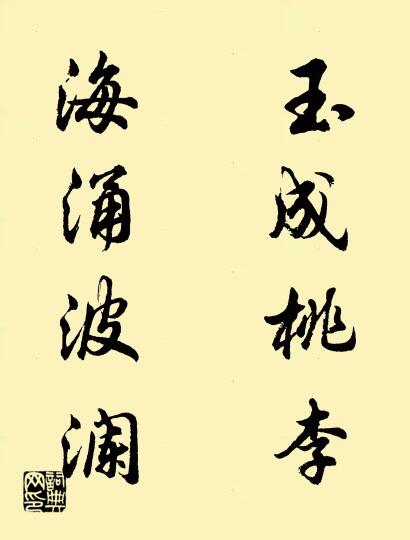 玉成桃李
海涌波澜